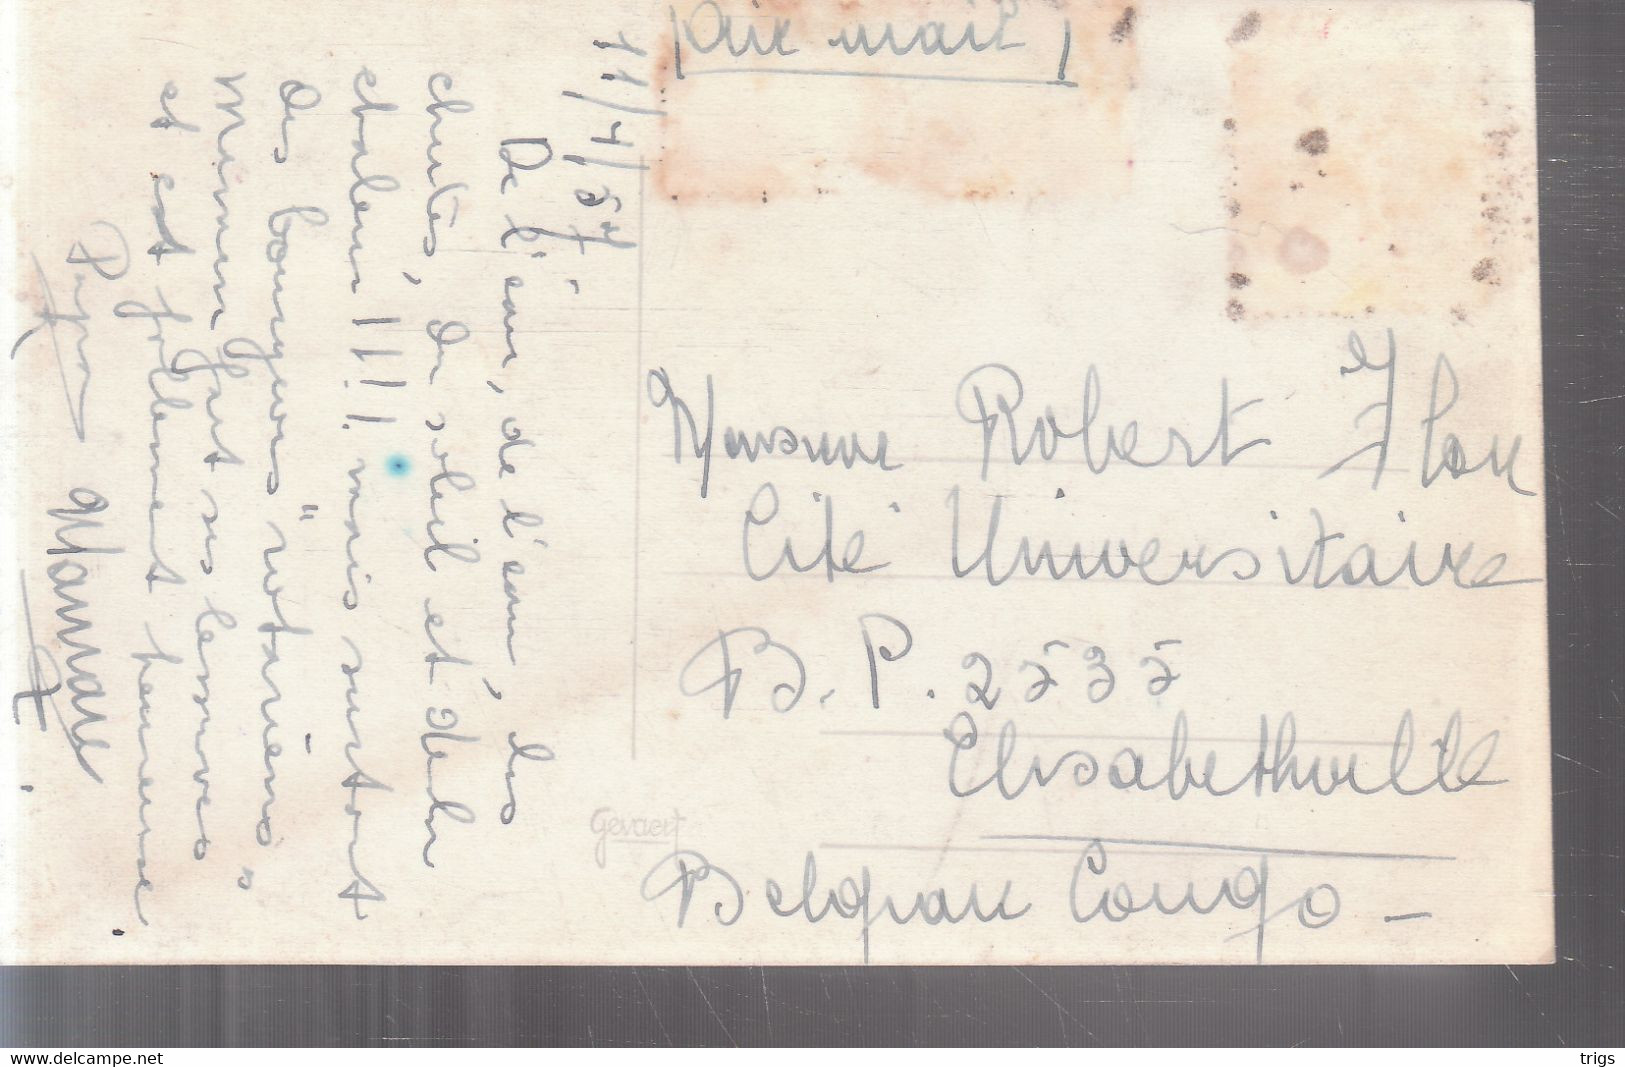 Air mail
11/4/57.
De l'eau, de l'eau, des
chutes, du soleil et de la
chaleur !!!! mais surtout
des bonjours "rotariens"
Mimi fait ses lessives
et est follement heureuse.
Papa Maman
Monsieur Robert Flon
Cité Universitaire
B.P. 2535
Elisabethville
Belgian Congo -
Gevaert
www.delcampe.net
trigs